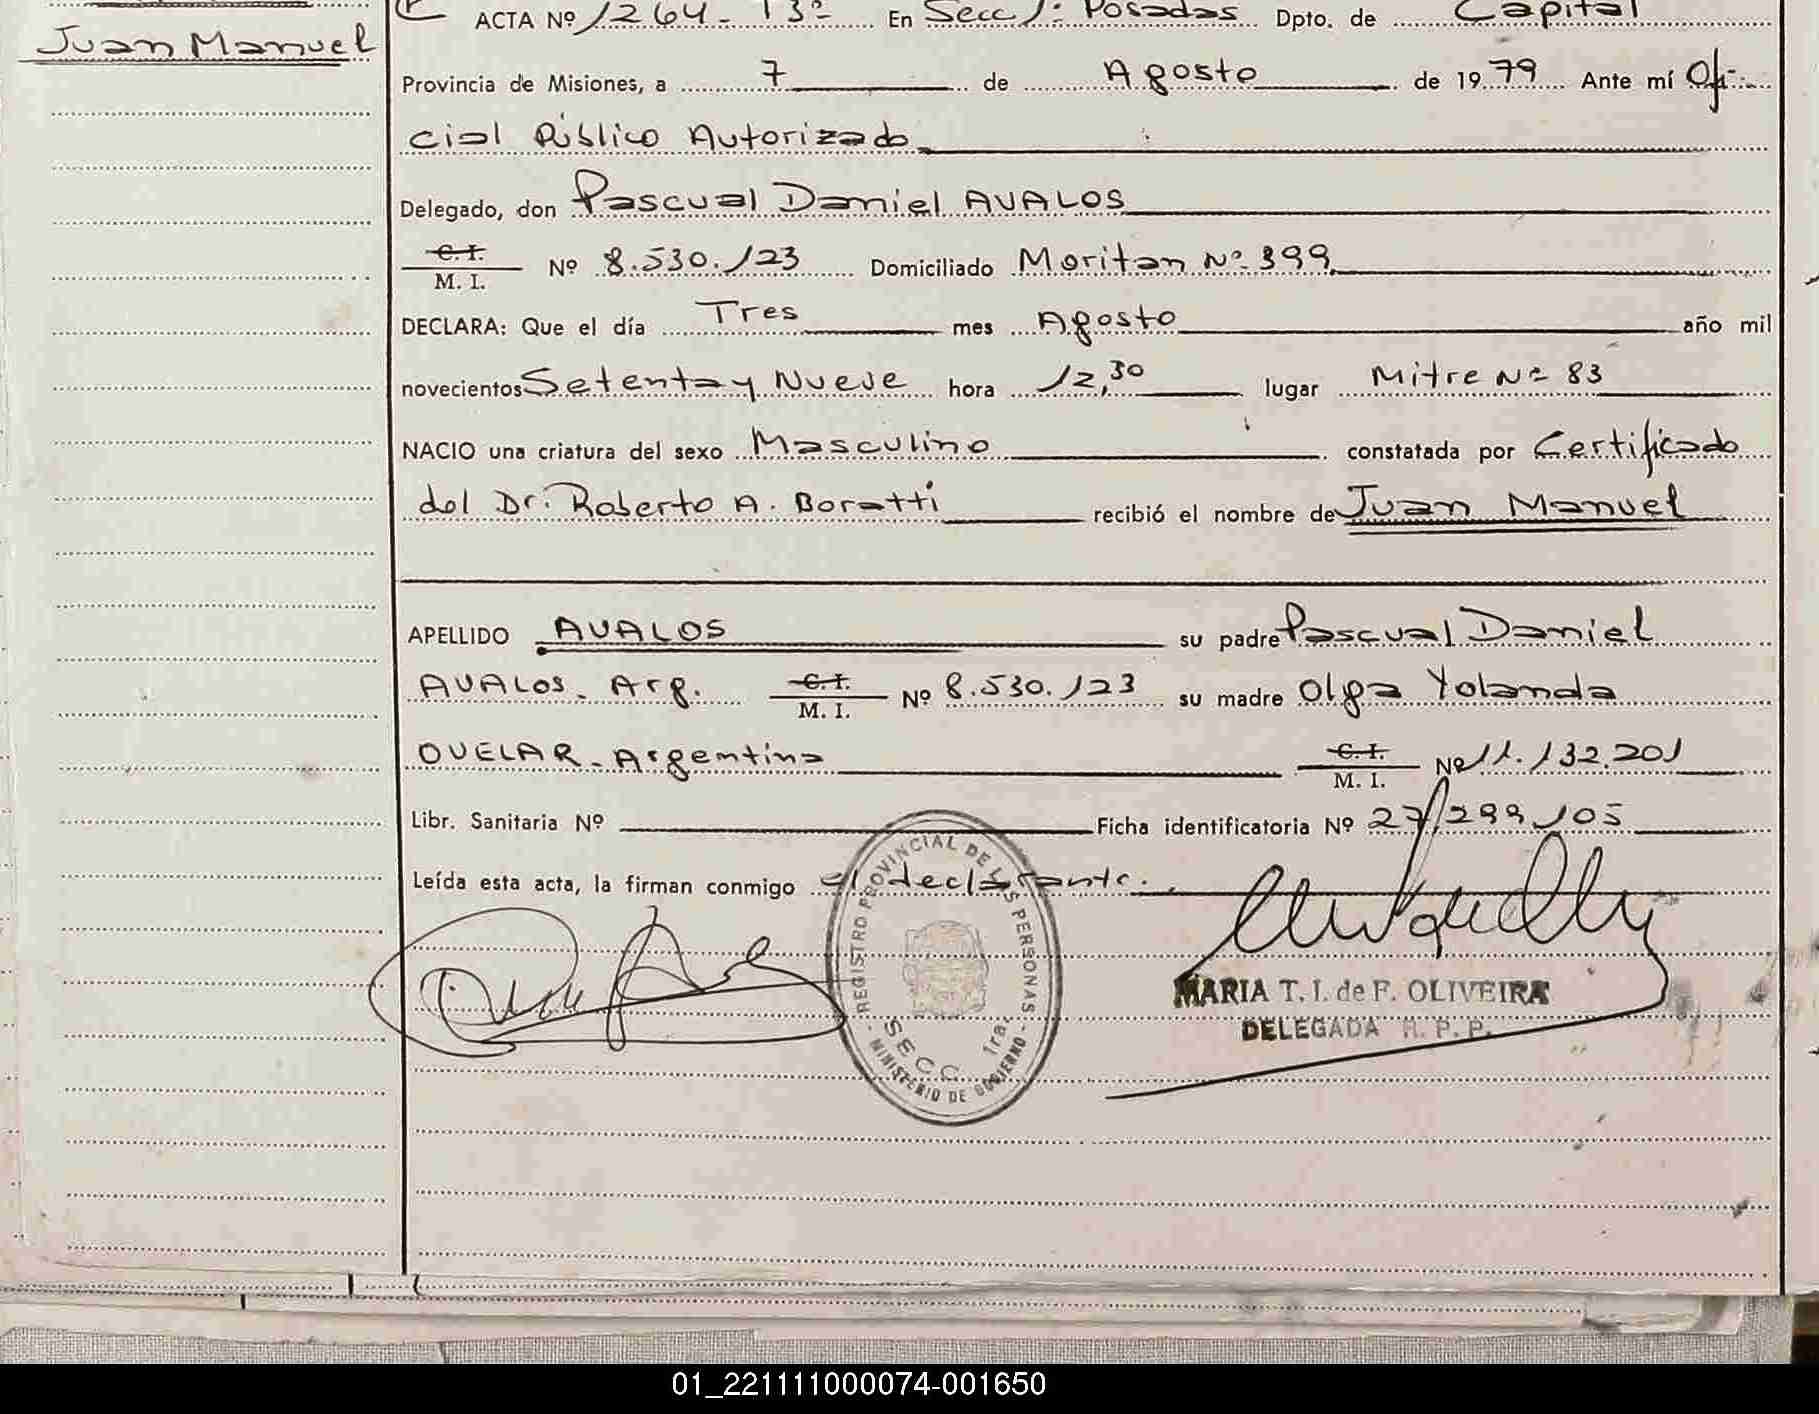 Juan Manuel
ACTA Nº 1264- T3º- En Secc 1: Posadas Dpto. de Capital
Provincia de Misiones, a 7 de Agosto de 1979 Ante mí Ofi-
cial Público Autorizado
Delegado, don Pascual Daniel AVALOS
C. I.
M. I. Nº 8.530.123 Domiciliado Moritan Nº 399
DECLARA: Que el día Tres mes Agosto año mil
novecientos Setenta y Nueve hora 12,30 lugar Mitre Nº 83
NACIO una criatura del sexo Masculino constatada por Certificado
del Dr. Roberto A. Boratti recibió el nombre de Juan Manuel
APELLIDO AVALOS su padre Pascual Daniel
AVALOS- Arg. C. I. M. I. Nº 8.530.123 su madre Olga Yolanda
OVELAR- Argentina C. I. M. I. Nº 11.132.201
Libr. Sanitaria Nº Ficha identificatoria Nº 27/299105
Leída esta acta, la firman conmigo el declarante.
REGISTRO PROVINCIAL DE LAS PERSONAS
SECC 1ra.
- MINISTERIO DE GOBIERNO -
MARIA T. I. de F. OLIVEIRA
DELEGADA R. P. P.
01_221111000074-001650